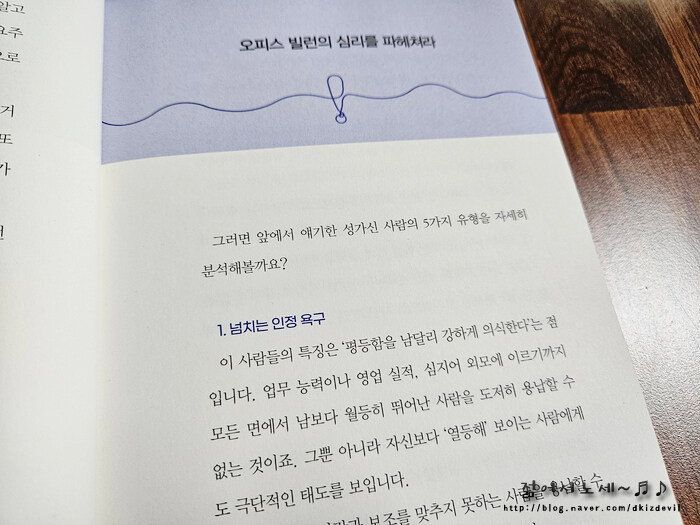 알고
요주
으로
거
또
가
오피스 빌런의 심리를 파헤쳐라
그러면 앞에서 얘기한 성가신 사람의 5가지 유형을 자세히
분석해볼까요?
1. 넘치는 인정 욕구
이 사람들의 특징은 ‘평등함을 남달리 강하게 의식한다’는 점
입니다. 업무 능력이나 영업 실적, 심지어 외모에 이르기까지
모든 면에서 남보다 월등히 뛰어난 사람을 도저히 용납할 수
없는 것이죠. 그뿐 아니라 자신보다 ‘열등해’ 보이는 사람에게
도 극단적인 태도를 보입니다.
보조를 맞추지 못하는 사람을 용납할 수
http://blog.naver.com/dkizdevil